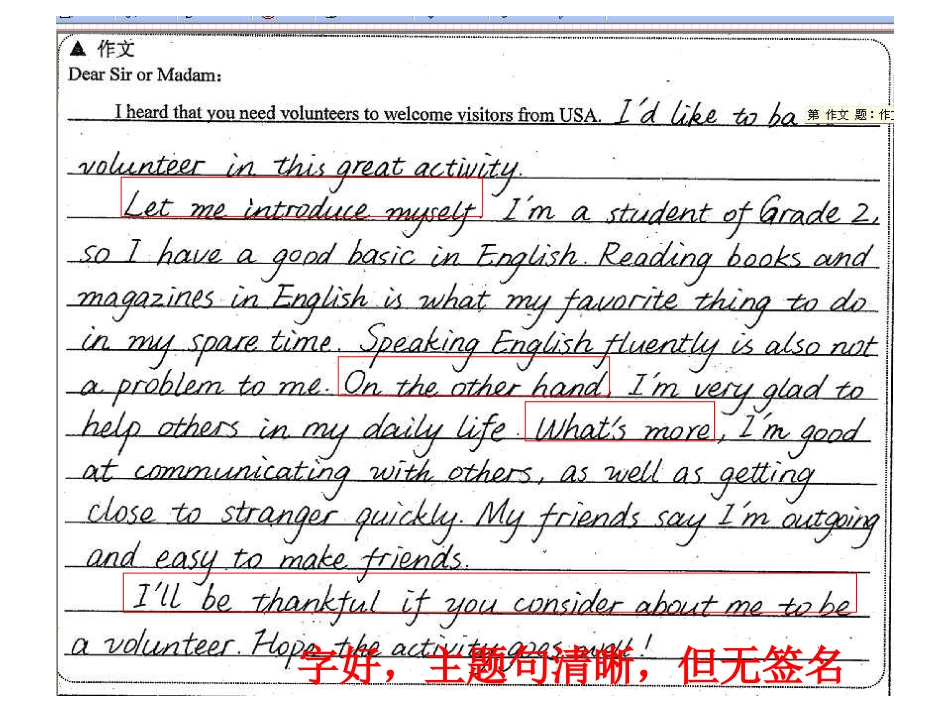 ▲ 作文
Dear Sir or Madam:
I heard that you need volunteers to welcome visitors from USA. I'd like to
第 作文 题:作
volunteer in this great activity.
Let me introduce myself. I'm a student of Grade 2,
so I have a good basic in English. Reading books and
magazines in English is what my favorite thing to do
in my spare time. Speaking English fluently is also not
a problem to me. On the other hand, I'm very glad to
help others in my daily life. What's more, I'm good
at communicating with others, as well as getting
close to stranger quickly. My friends say I'm outgoing
and easy to make friends.
I'll be thankful if you consider about me to be
a volunteer. Hope the activity goes well!
字好，主题句清晰，但无签名